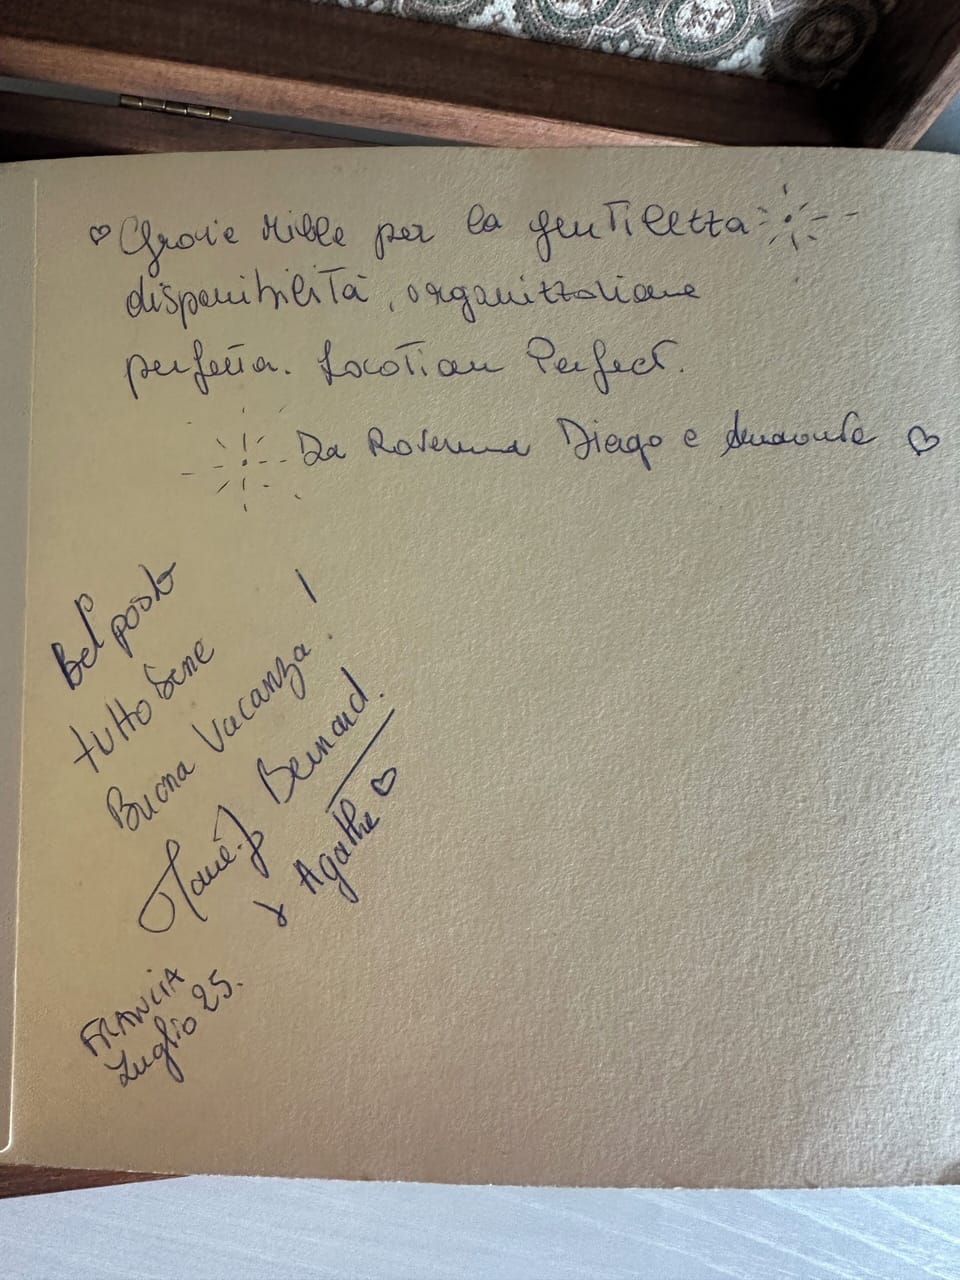 Grazie Mille per la gentilezza
disponibilità, organizzazione
perfetta. Location Perfect.
Da Rosanna Diago e
Bel posto
tutto bene
Buona Vacanza!
Bernard.
Agathe
FRANCIA
Luglio 25.